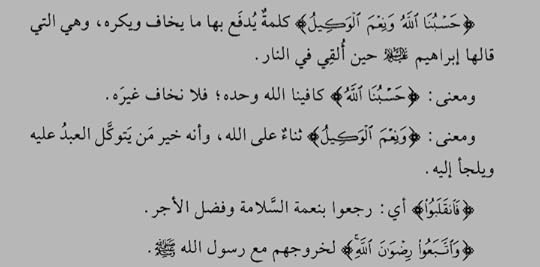 ﴿حَسْبُنَا ٱللَّهُ وَنِعْمَ ٱلْوَكِيلُ﴾ كلمةٌ يُدفَع بها ما يخاف ويكره، وهي التي
قالها إبراهيم ﷺ حين أُلقِي في النار.
ومعنى: ﴿حَسْبُنَا ٱللَّهُ﴾ كافينا الله وحده؛ فلا نخاف غيرَه.
ومعنى: ﴿وَنِعْمَ ٱلْوَكِيلُ﴾ ثناءٌ على الله، وأنه خير مَن يَتوكَّل العبدُ عليه
ويلجأ إليه.
﴿فَٱنقَلَبُوا۟﴾ أي: رجعوا بنعمة السَّلامة وفضل الأجر.
﴿وَٱتَّبَعُوا۟ رِضْوَٰنَ ٱللَّهِ﴾ لخروجهم مع رسول الله ﷺ.